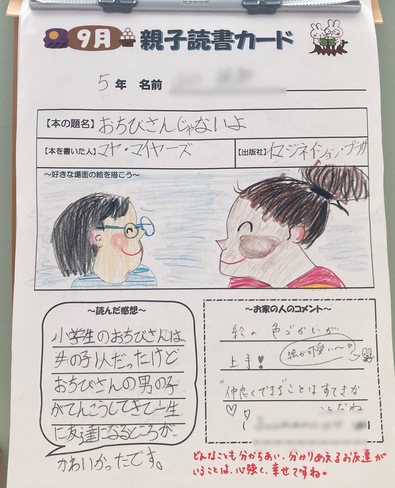 9月 親子読書カード
5年 名前
【本の題名】おちびさんじゃないよ
【本を書いた人】マヤ・マイヤーズ 【出版社】イマジネイション・プラス
〜好きな場面の絵を描こう〜
〜読んだ感想〜
小学生のおちびさんは、
女の子1人だったけど
おちびさんの男の子
がてんこうしてきて一生
に友達になるところが、
かわいかったです。
〜お家の人のコメント〜
絵の色づかいが
上手!
絵が可愛い〜
"仲良くできる"ことはすてきな
ことだね
どんなことも分かちあい、分かりあえるお友達が
いることは、心強く、幸せですね。